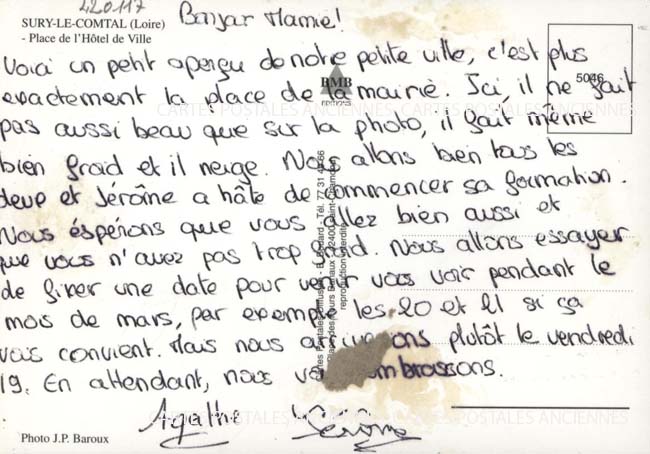 420117
SURY-LE-COMTAL (Loire)
- Place de l'Hôtel de Ville
Bonjour Mamie!
Voici un petit aperçu de notre petite ville, c'est plus
exactement la place de la mairie. Ici, il ne fait
pas aussi beau que sur la photo, il fait même
bien froid et il neige. Nous allons bien tous les
deux et Jérôme a hâte de commencer sa formation.
Nous éspérons que vous allez bien aussi et
que vous n'avez pas trop froid. Nous allons essayer
de fixer une date pour venir vous voir pendant le
mois de mars, par exemple les 20 et 21 si ça
vous convient. Mais nous arriverons plutôt le vendredi
19. En attendant, nous embrassons.
Agathe Jérôme
BMB
5046
CARTES POSTALES ANCIENNES
CARTES POSTALES ANCIENNES
Photo J.P. Baroux